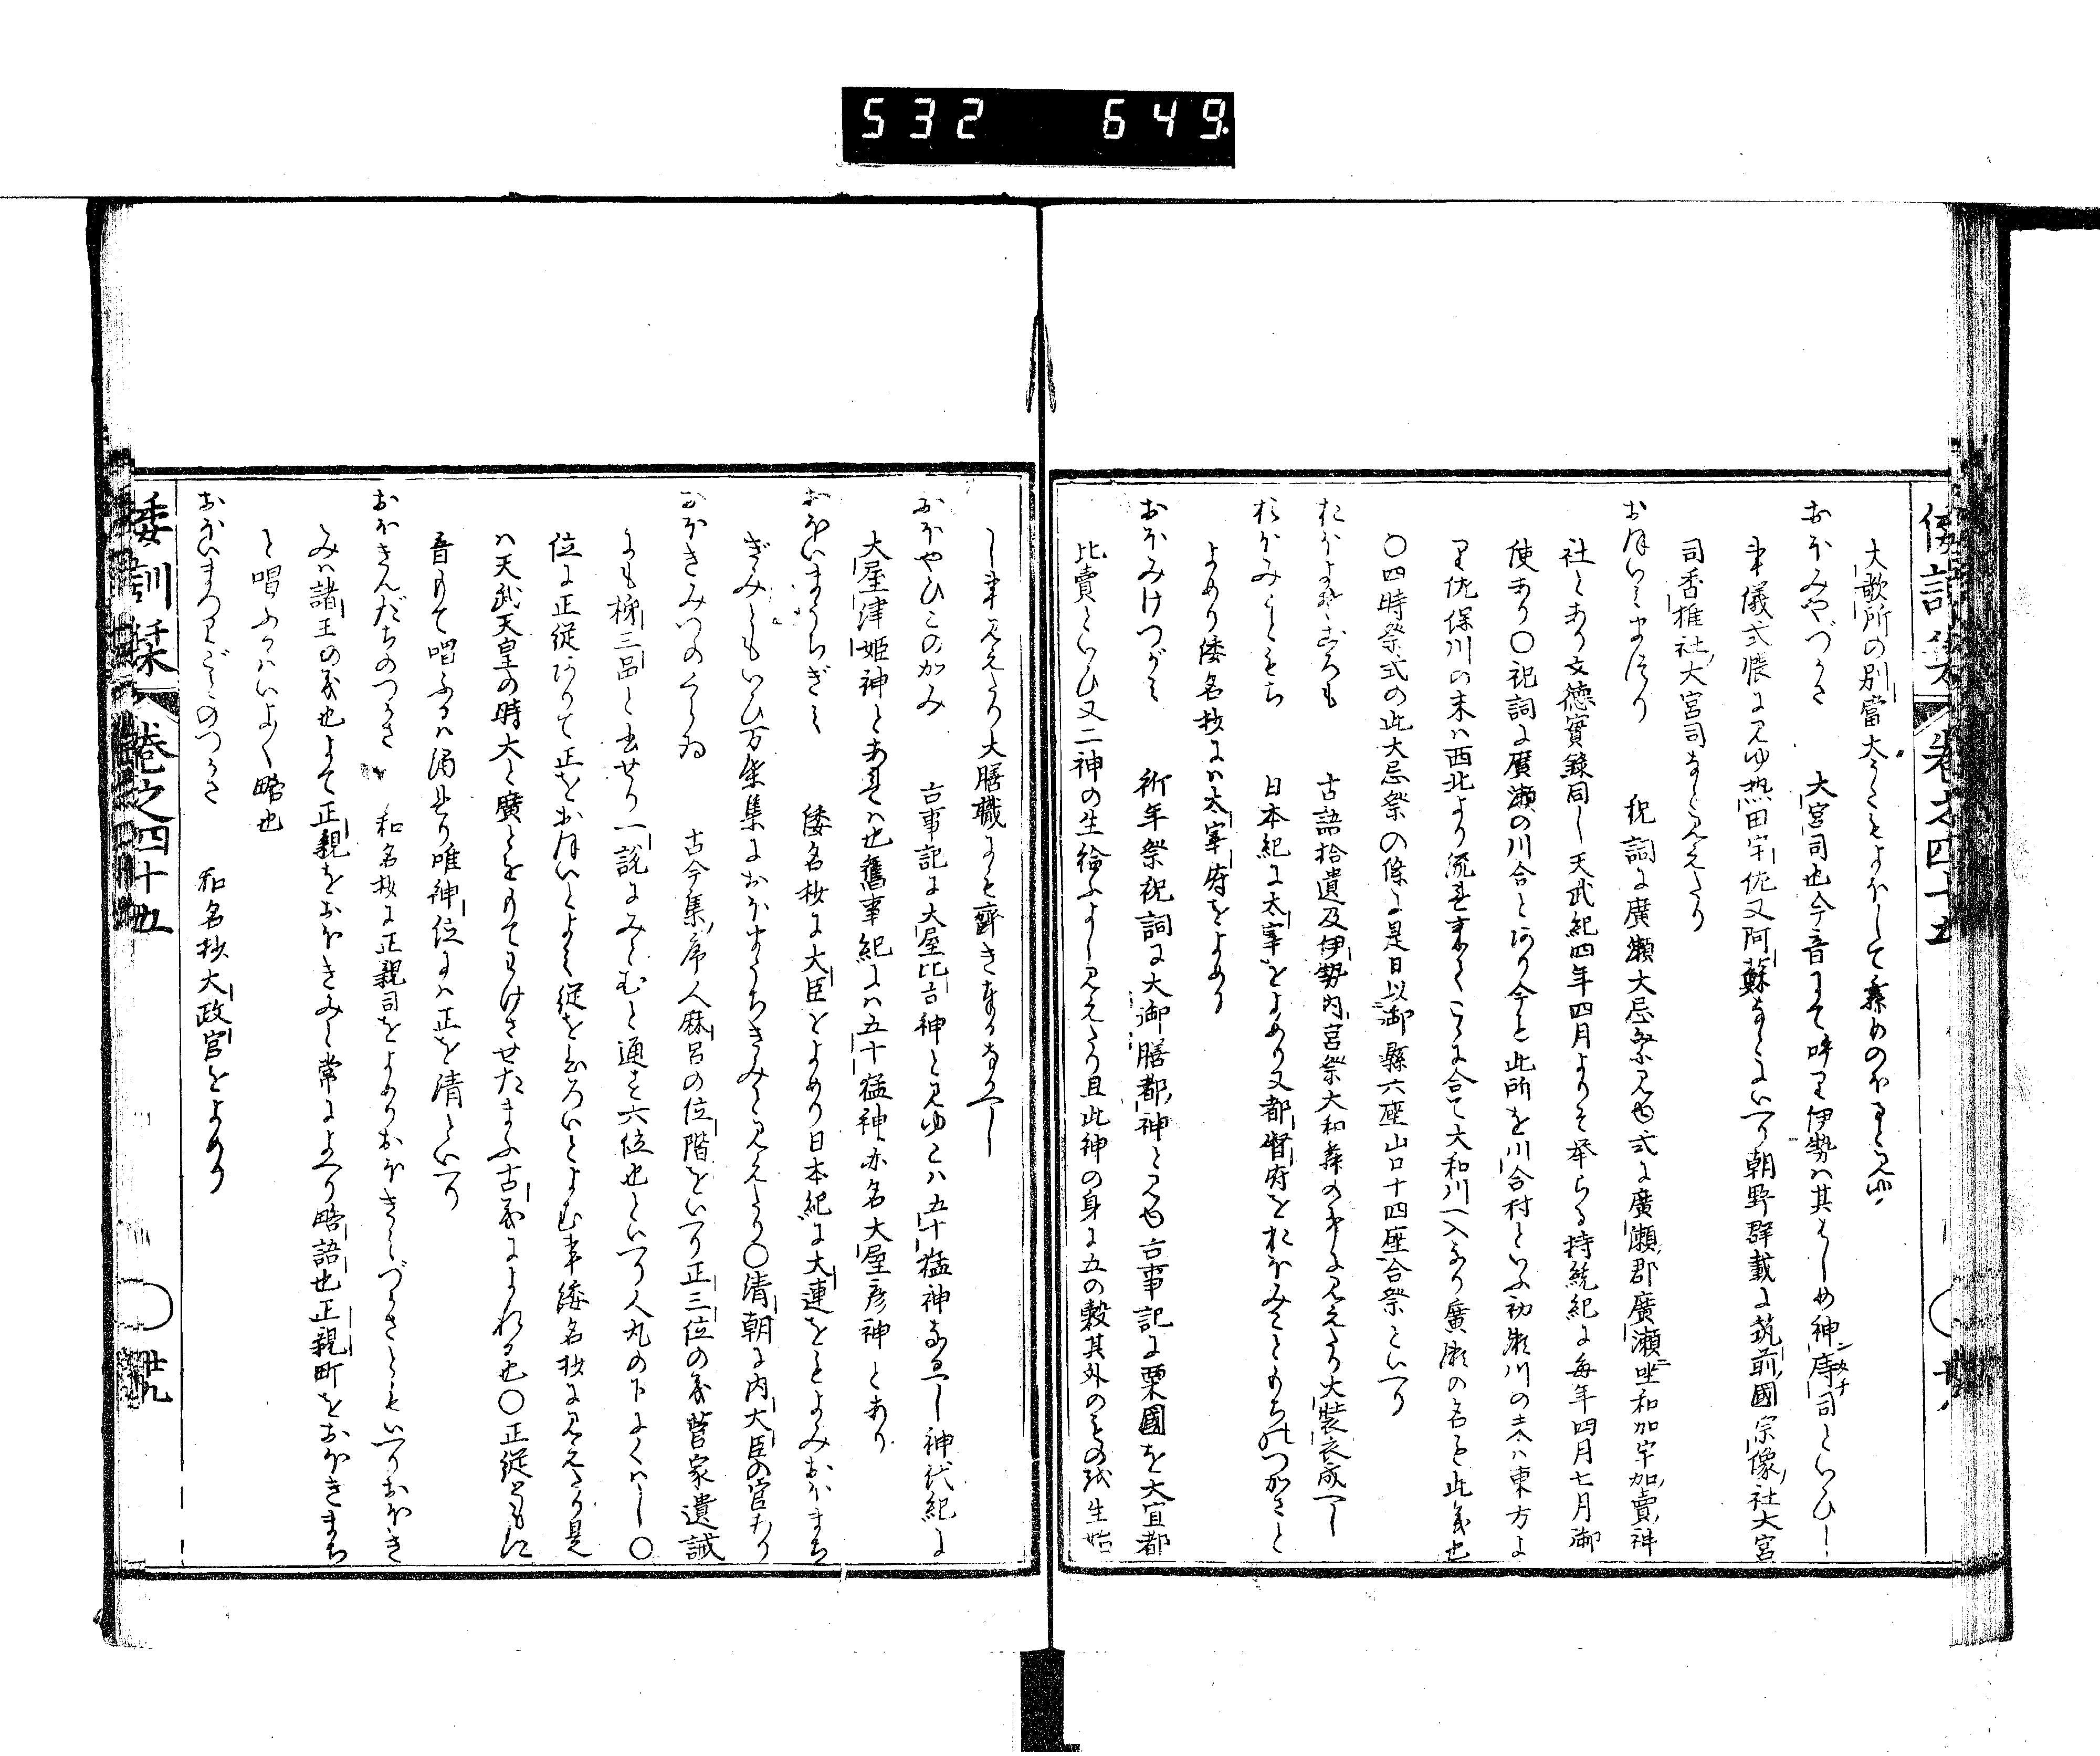 532 649
倭訓栞 卷之四十五
大歌所の別當大うたをよほして舞めのほると見ゆ
おほみやづかさ 大宮司也今音にて呼り伊勢は其はじめ神庤司といひし
事儀式帳に見ゆ熱田宇佐又阿蘇などにいへり朝野群載に筑前國宗像社大宮
司香椎社大宮司など見えたり
おほいみまつり 祝詞に廣瀬大忌祭見ゆ式に廣瀬郡廣瀬坐和加宇加賣神
社とあり文德實錄同し天武紀四年四月よりそ挙らる持統紀に毎年四月七月御
使あり〇祝詞に廣瀬の川合とあり今も此所を川合村といふ初瀬川の末は東方よ
り佐保川の末は西北より流れ来てこゝに合て大和川へ入なり廣瀬の名も此義也
〇四時祭式の此大忌祭の條に是日以御縣六座山口十四座合祭といへり
おほよそころも 古語拾遺及伊勢内宮祭大和舞の中に見えたり大裝衣成へし
おほみこともち 日本紀に太宰をよめり又都督府をおほみこともちのつかさと
よめり倭名抄には太宰府をよめり
おほみけつがみ 祈年祭祝詞に大御膳都神と見ゆ古事記に粟國を大宜都
比賣といひ又二神の生給ふよし見えたり且此神の身に五の穀其外のもの哉生始
し事見えたり大膳職にも齋き奉るなるへし
おほやひこのかみ 古事記に大屋比古神と見ゆこは五十猛神なるへし神代紀に
大屋津姫神とあれは也舊事紀には五十猛神亦名大屋彦神とあり
おほいまうちぎみ 倭名抄に大臣をよめり日本紀に大連をもよみおほまち
ぎみともいひ万葉集におほまうちきみと見えたり〇清朝に内大臣の官あり
おほきみつのくらゐ 古今集序人麻呂の位階をいへり正三位の義菅家遺誡
にも柿三品と書せり一説にみとむと通す六位也といへり人丸の下にくはし〇
位に正従ありて正をおほいとよみ従をひろいとよむ事倭名抄に見えたり是
は天武天皇の時大と廣とをもてわけさせたまふ古義によれる也〇正従ともに
音もて唱ふるは濁れり唯神位には正を清といへり
おほきんだちのつかさ 和名抄に正親司をよめりおほきみつかさともいへりおほき
みは諸王の義也よて正親をおほきみと常によへり略語也正親町をおほきまち
と唱ふるはいよ〱略也
おほいまつりごとのつかさ 和名抄大政官をよめり
倭訓栞 卷之四十五 〇 廿九